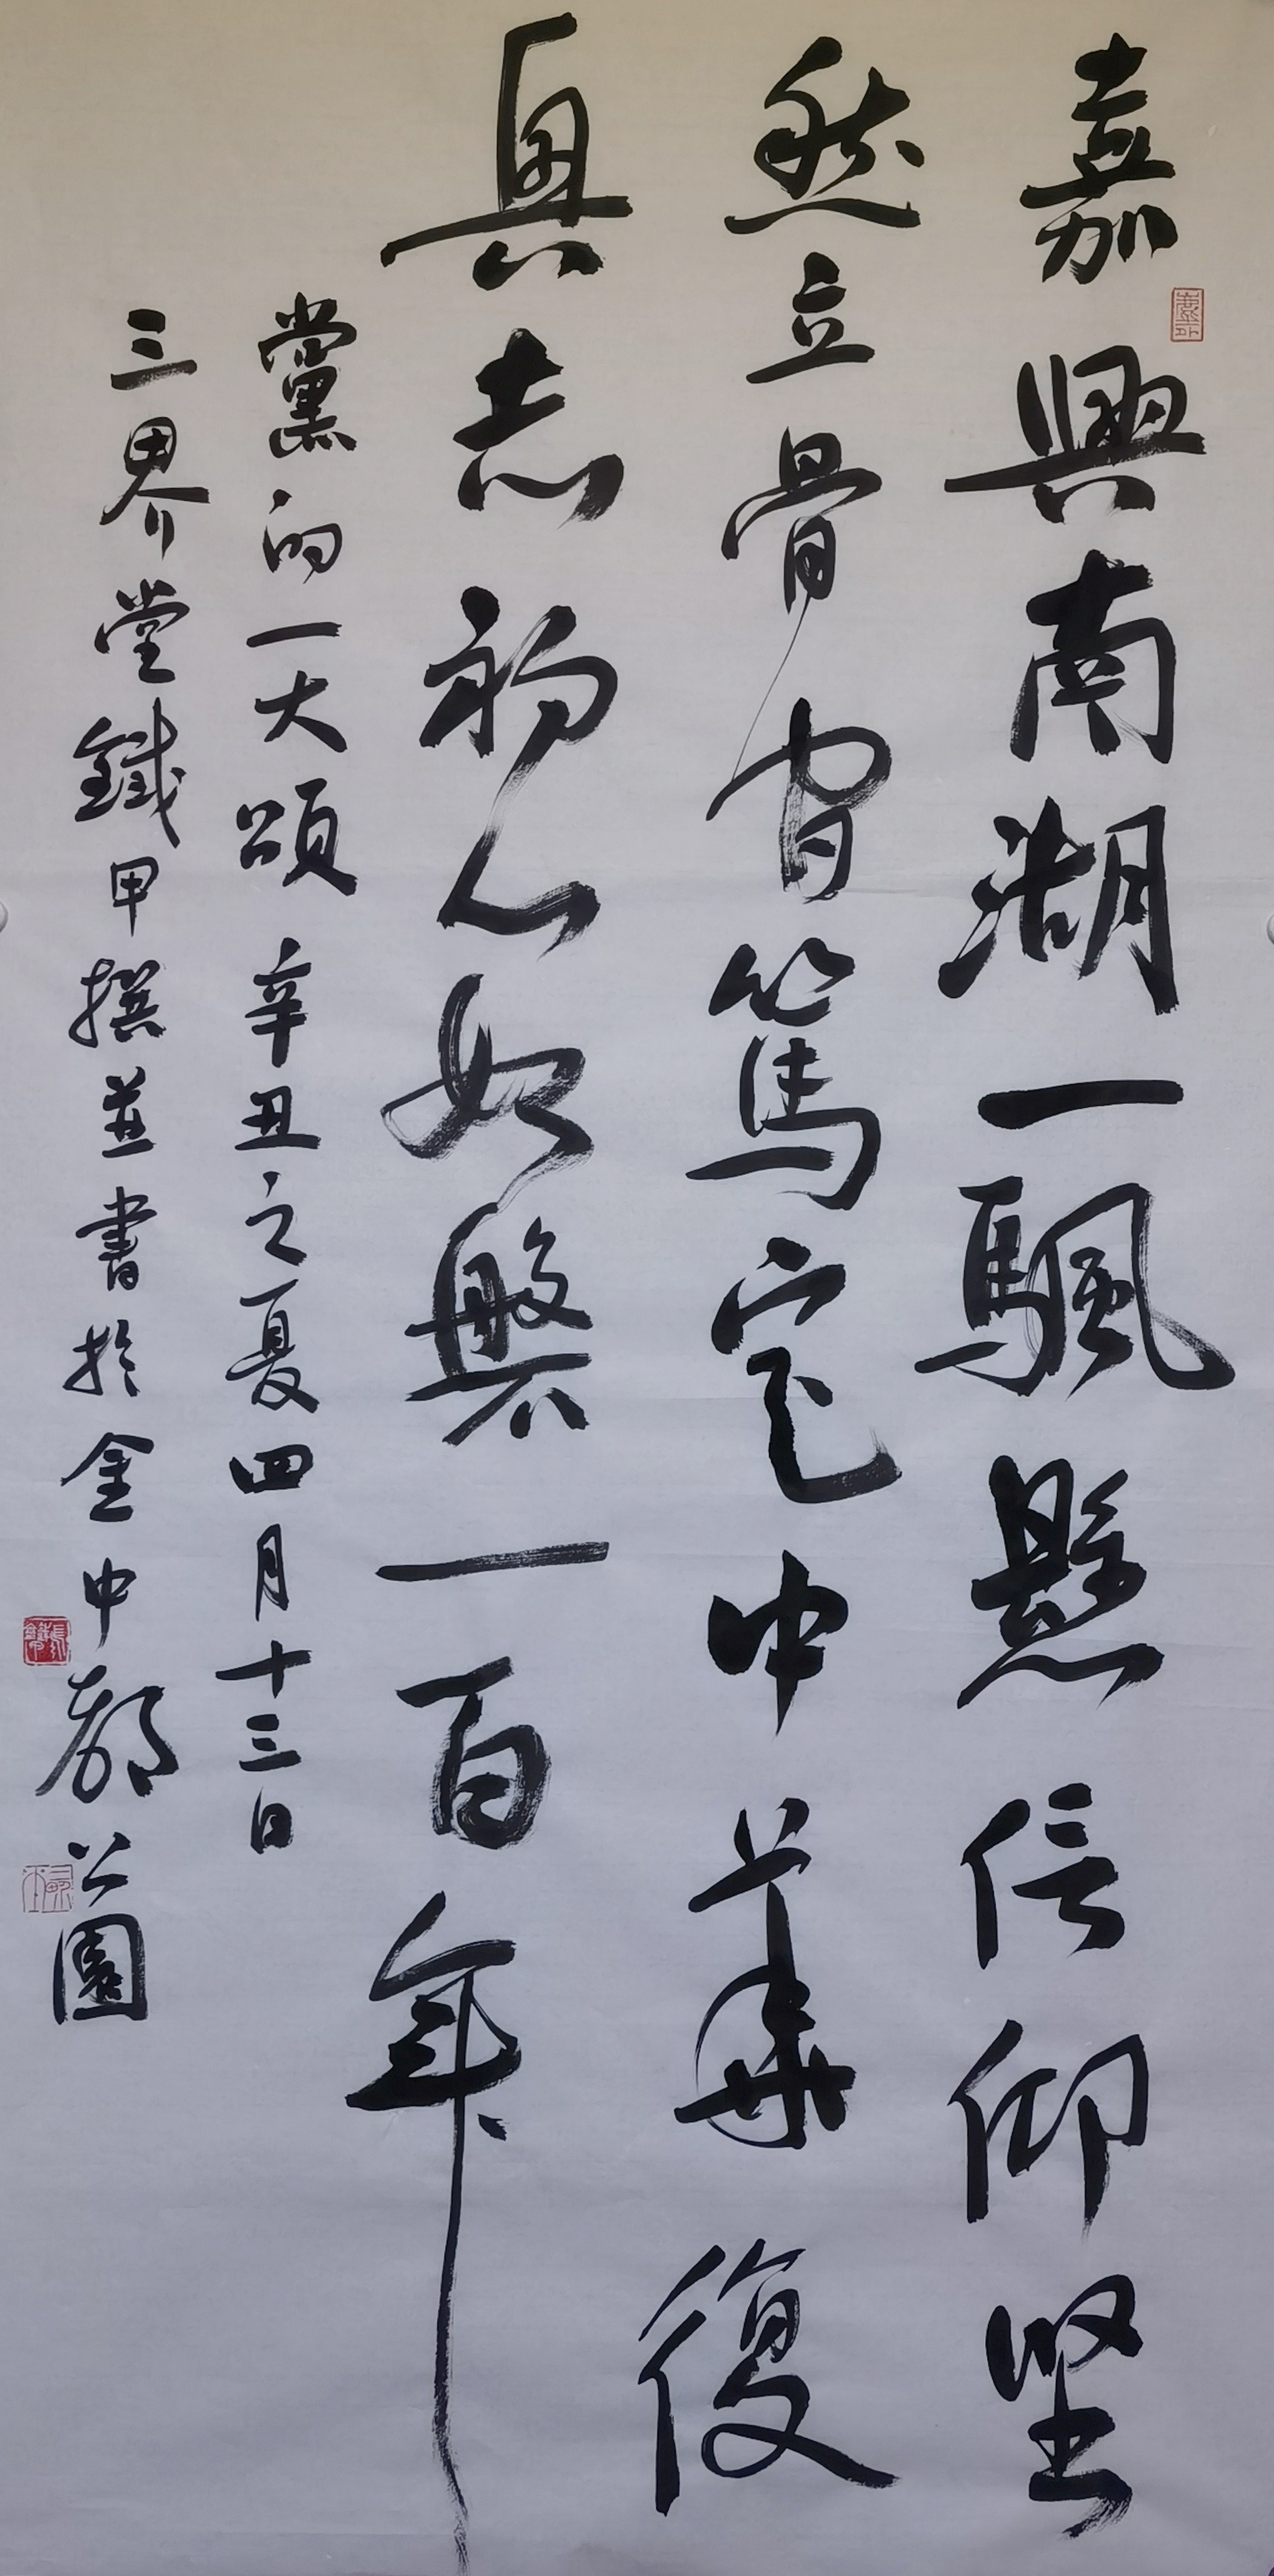 嘉興南湖一颿懸信仰坚
然立骨間篤定中華復
興志初心如槃一百年
黨的一大頌 辛丑之夏四月十三日
三界堂鐵甲撰並書於金中都公園